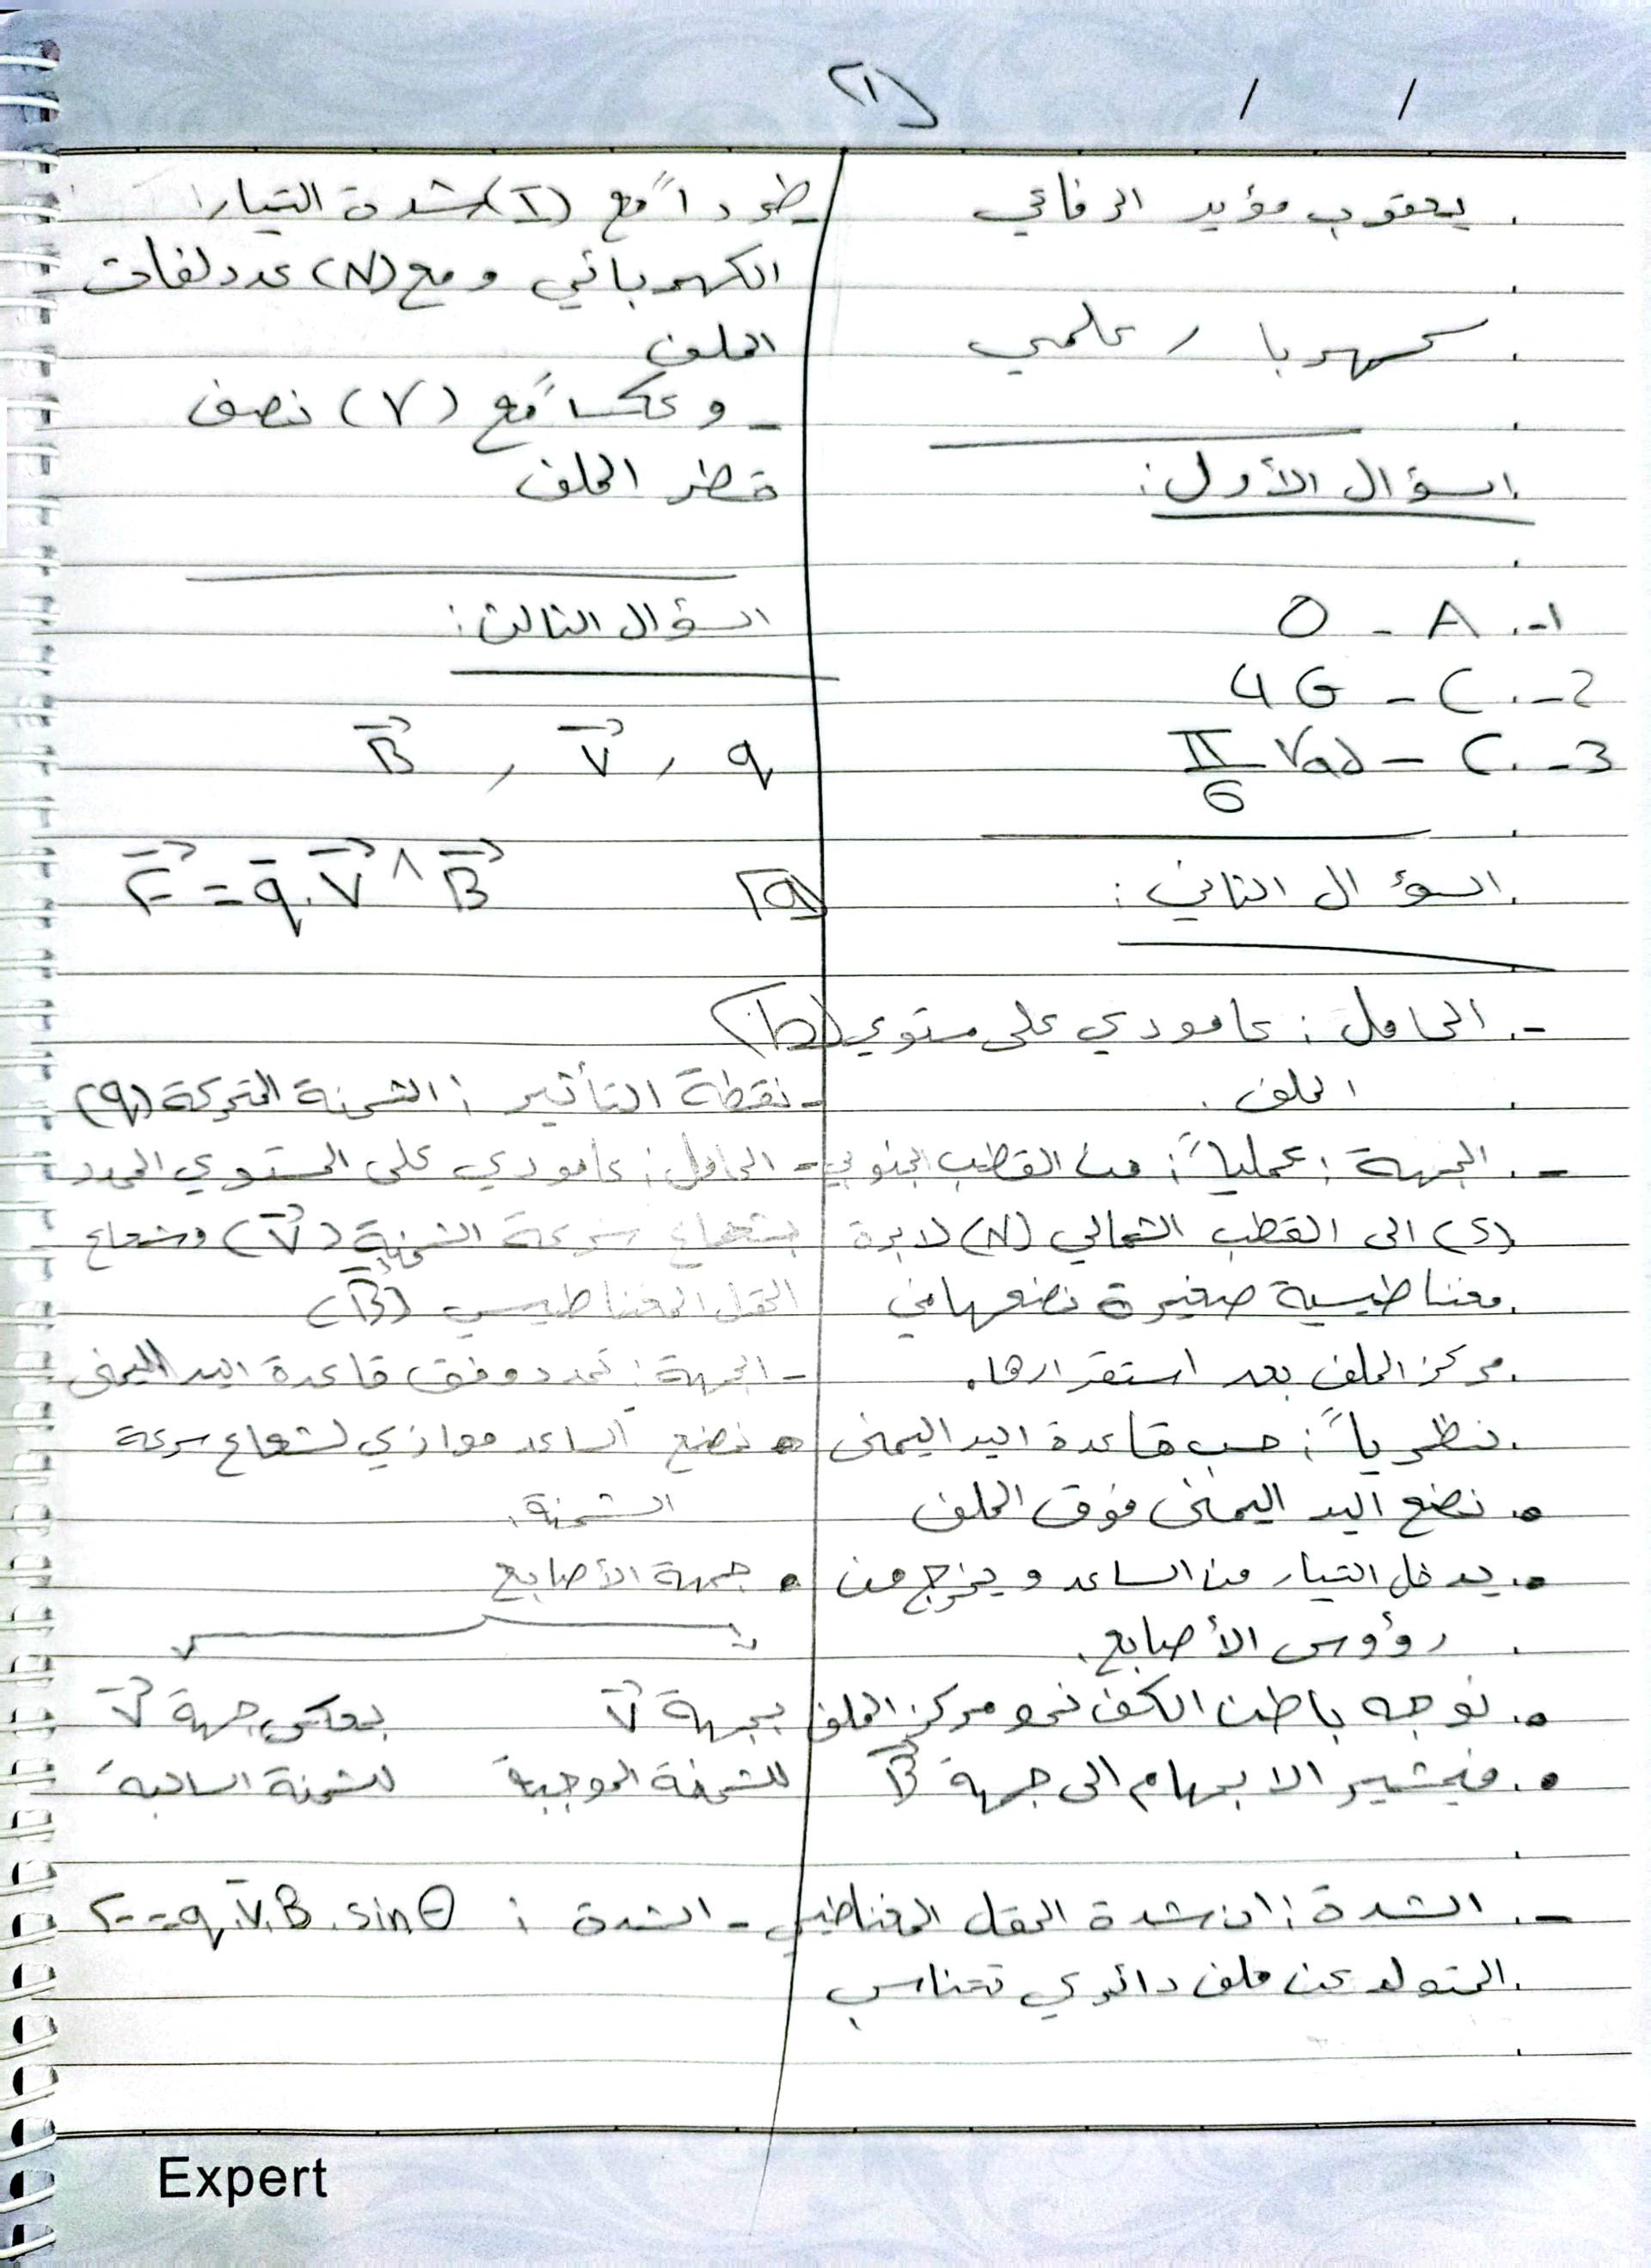 (1)
/ /
يعقوب مؤيد الرفاعي
كهربا / علمي
السؤال الأول:
1- A - 0
2- C - 4G
3- C - π/6 rad
السؤال الثاني:
- الحامل: عامودي على مستوي
الملف.
- الجهة: عملياً: من القطب الجنوبي
(S) الى القطب الشمالي (N) لابرة
مغناطيسية صغيرة نضعها في
مركز الملف بعد استقرارها.
نظرياً: حسب قاعدة اليد اليمنى
• نضع اليد اليمنى فوق الملف
• يدخل التيار من الساعد ويخرج من
رؤوس الأصابع.
• نوجه باطن الكف نحو مركز الملف
• فيشير الابهام الى جهة B⃗
- الشدة: ان شدة الحقل المغناطيسي
المتولد عن ملف دائري تتناسب
- طرداً مع (I) شدة التيار
الكهربائي ومع (N) عدد لفات
الملف
- وعكساً مع (r) نصف
قطر الملف
السؤال الثالث:
q , V⃗ , B⃗
(a) F⃗ = q̄.V⃗ ^ B⃗
(b)
- نقطة التأثير: الشحنة المتحركة (q)
- الحامل: عامودي على المستوي المحدد
بشعاع سرعة الشحنة (V⃗) وشعاع
الحقل المغناطيسي (B⃗)
- الجهة: تحدد وفق قاعدة اليد اليمنى
• نضع الساعد موازي لشعاع سرعة
الشحنة.
• جهة الأصابع
بجهة V⃗ بعكس جهة V⃗
للشحنة الموجبة للشحنة السالبة
- الشدة: F = q.v.B.sinθ
Expert